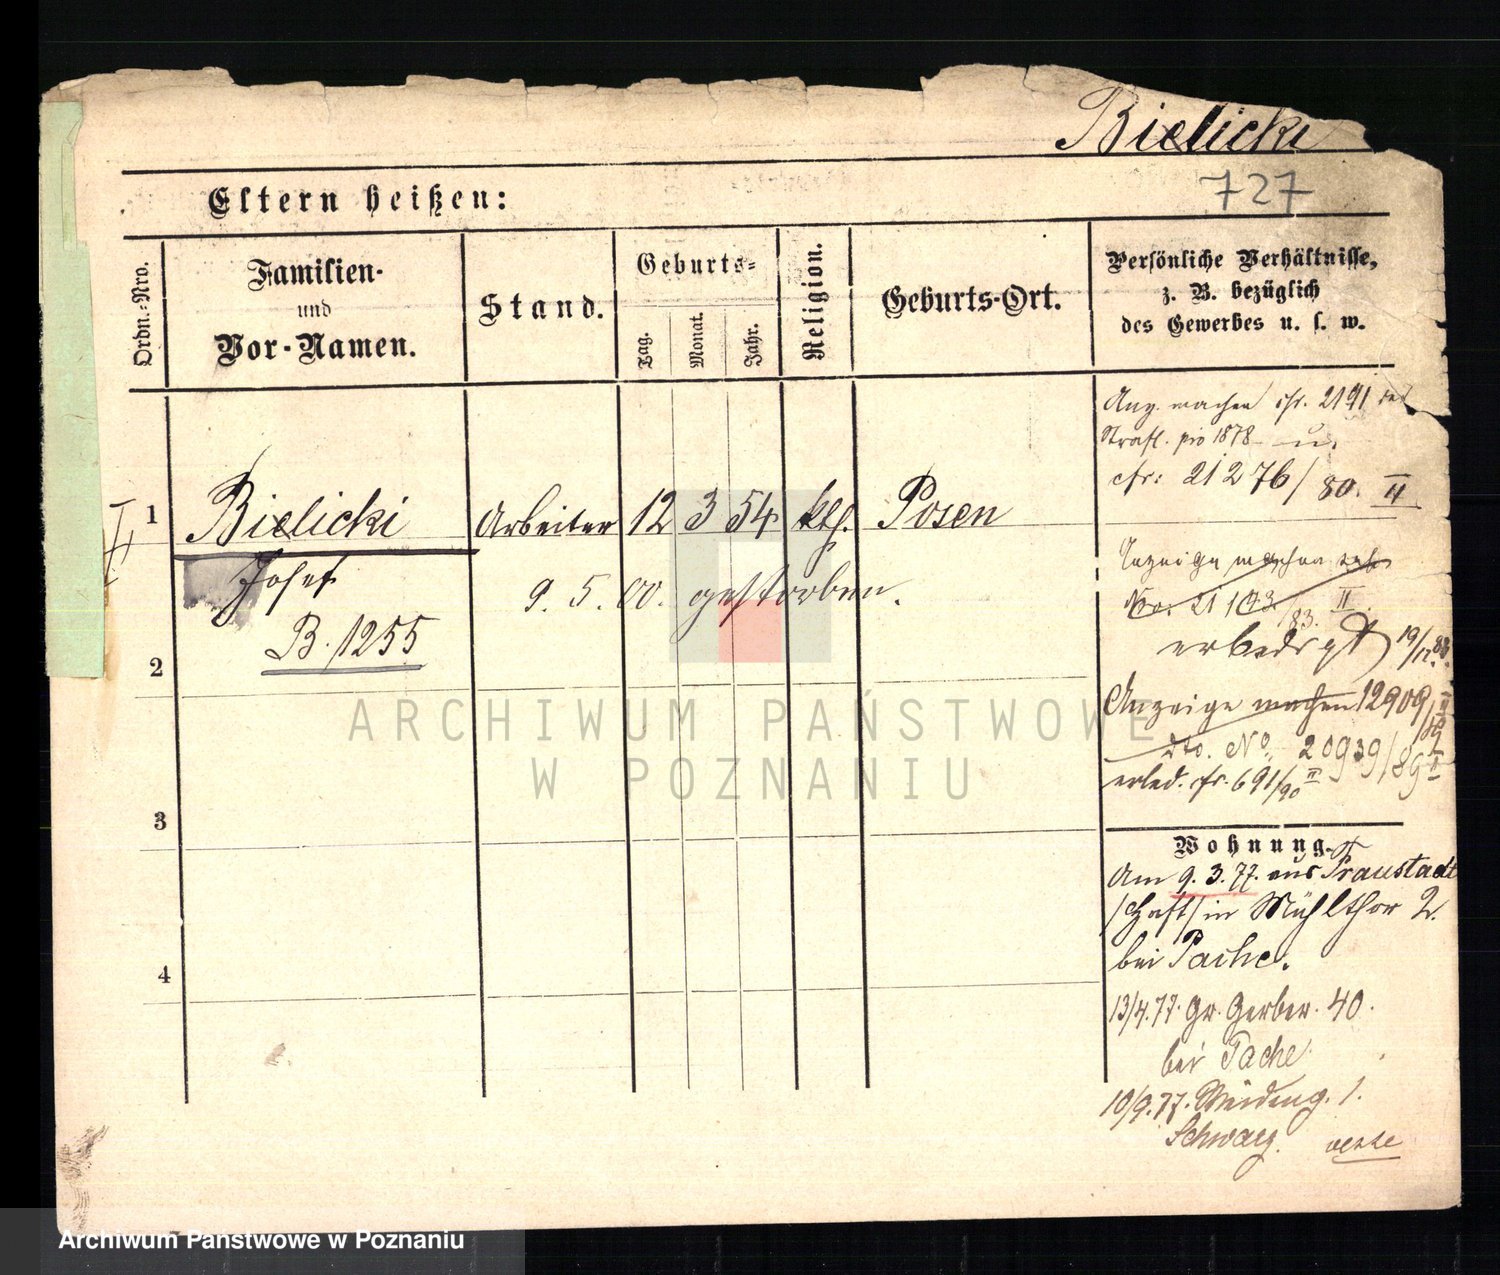 Bielicki
727
Eltern heißen:
Ordn.-Nro.
Familien-
und
Vor-Namen.
Stand.
Geburts-
Tag.
Monat.
Jahr.
Religion.
Geburts-Ort.
Persönliche Verhältnisse,
z. B. bezüglich
des Gewerbes u. s. w.
Anz. machen cfr. 2191 des
Strafl. pro 1878 u.
cfr: 21276/80. II
II
1 Bielicki Arbeiter 12 3 54 kth. Posen
Josef
9. 5. 00. gestorben.
B. 1255
Anzeige machen
No. 21 /83. II.
19/12. 88.
2
Anzeige machen 12909/
dto. No. 20939/89 II
erled. cfr. 691/90 II
3
Wohnung.
Am 9. 3. 77. aus Fraustadt
/Haft/ in Mühlthor 2.
bei Pache.
4
13/4.77. Gr. Gerber. 40.
bei Pache
10/9.77. 1.
ARCHIWUM PAŃSTWOWE
W POZNANIU
Archiwum Państwowe w Poznaniu